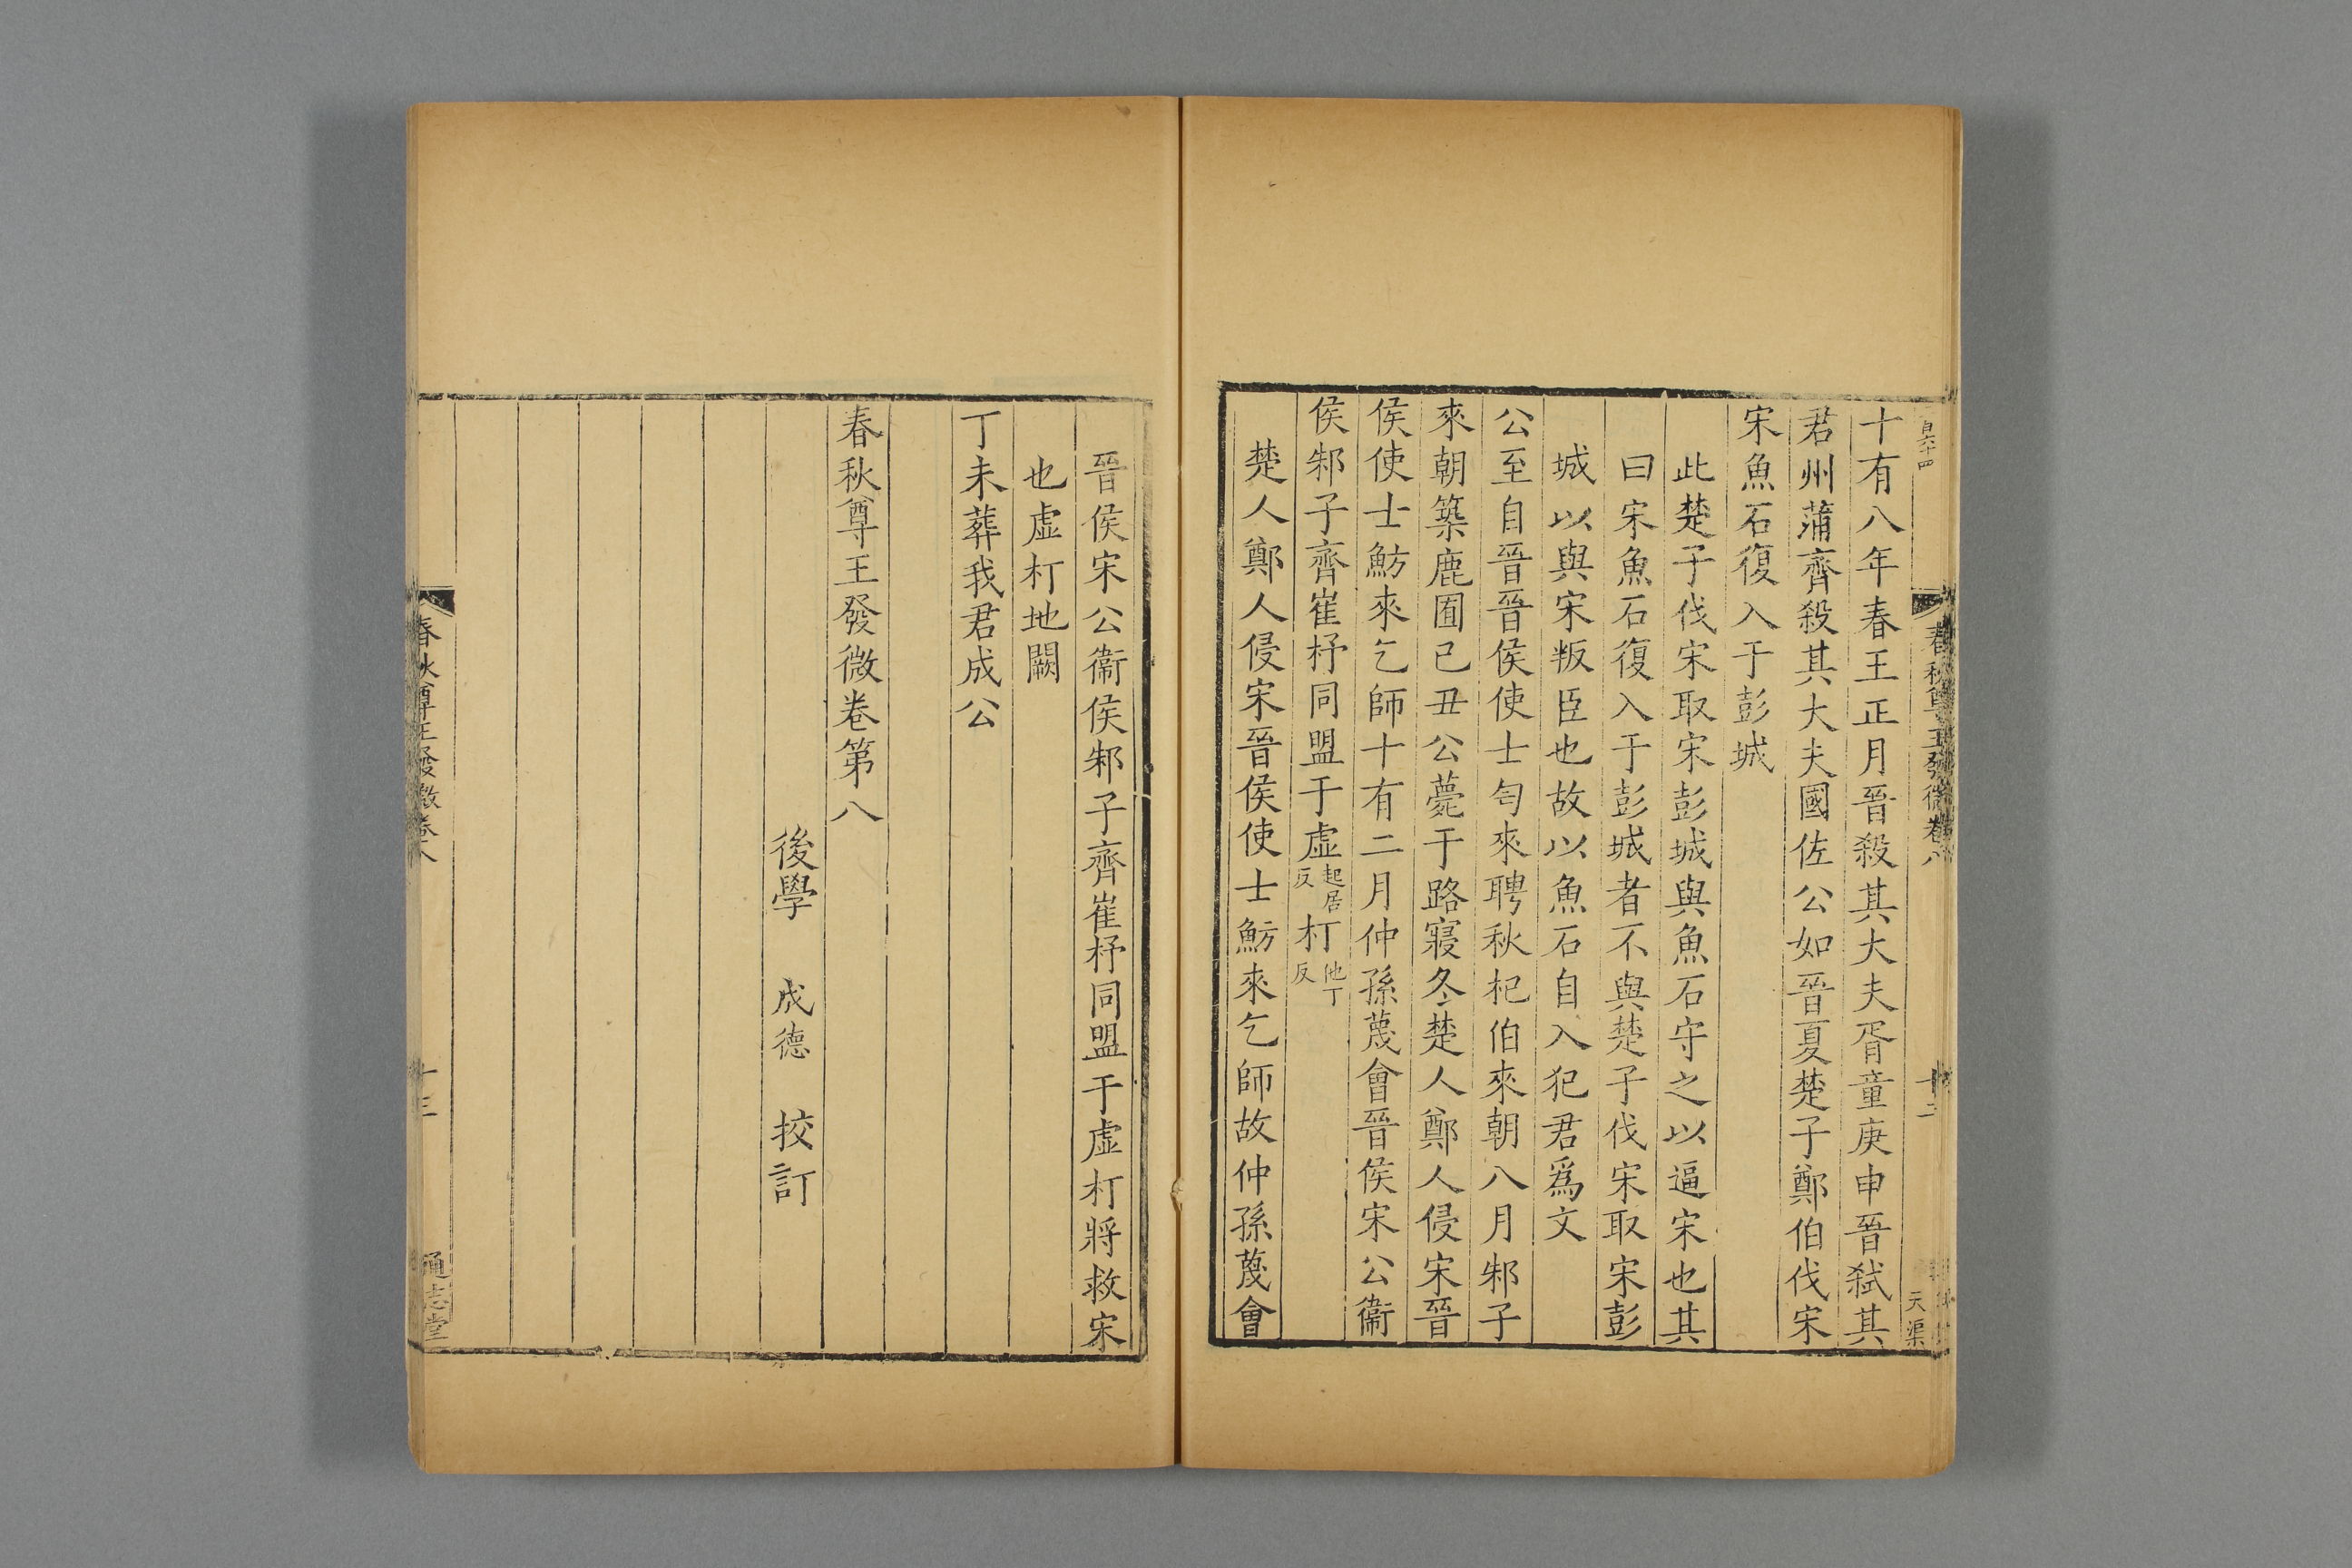 百六十四
春秋尊王發微卷八
十二
天渠
十有八年春王正月晉殺其大夫胥童庚申晉弑其
君州蒲齊殺其大夫國佐公如晉夏楚子鄭伯伐宋
宋魚石復入于彭城
此楚子伐宋取宋彭城與魚石守之以逼宋也其
曰宋魚石復入于彭城者不與楚子伐宋取宋彭
城以與宋叛臣也故以魚石自入犯君爲文
公至自晉晉侯使士匄來聘秋杞伯來朝八月邾子
來朝築鹿囿己丑公薨于路寢冬楚人鄭人侵宋晉
侯使士魴來乞師十有二月仲孫蔑會晉侯宋公衞
侯邾子齊崔杼同盟于虛起居反朾他丁反
楚人鄭人侵宋晉侯使士魴來乞師故仲孫蔑會
晉侯宋公衞侯邾子齊崔杼同盟于虛朾將救宋
也虛朾地闕
丁未葬我君成公
春秋尊王發微卷第八
後學 成德 挍訂
春秋尊王發微卷八
十三
通志堂